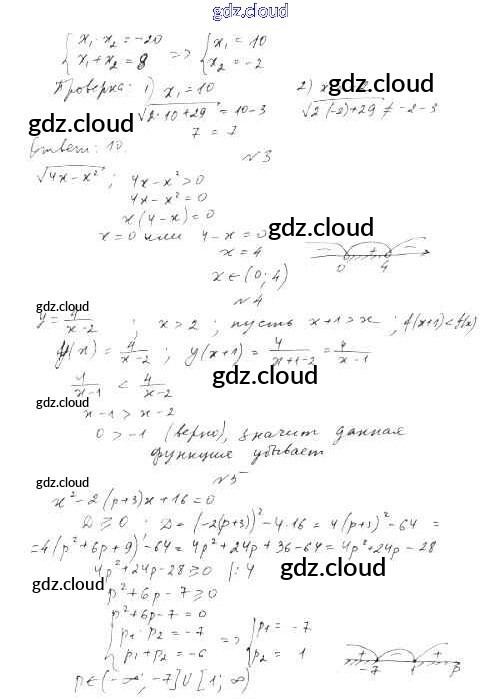 gdz.cloud
{x₁·x₂=-20 => {x₁=10
{x₁+x₂=8 {x₂=-2
Проверка: 1) x₁=10 2)
√(2·10+29)=10-3 √(2(-2)+29)≠-2-3
7=7
gdz.cloud
gdz.cloud
Ответ: 10.
№3
√(4x-x²); 4x-x²>0
4x-x²=0
x(4-x)=0
x=0 или 4-x=0
gdz.cloud
x=4
- + -
0 4
x∈(0;4)
№4
gdz.cloud
y=4/(x-2); x>2; пусть x+1>x; f(x+1)<f(x)
y(x)=4/(x-2); y(x+1)=4/(x+1-2)=4/(x-1)
gdz.cloud
4/(x-1) < 4/(x-2)
gdz.cloud
x-1>x-2
0>-1 (верно), значит данная
функция убывает
№5
gdz.cloud
x²-2(p+3)x+16=0
D≥0; D=(-2(p+3))²-4·16=4(p+3)²-64=
=4(p²+6p+9)-64=4p²+24p+36-64=4p²+24p-28
4p²+24p-28≥0 |:4
gdz.cloud
gdz.cloud
p²+6p-7≥0
p²+6p-7=0
{p₁·p₂=-7 => {p₁=-7
{p₁+p₂=-6 {p₂=1
+ - +
-7 1 p
p∈(-∞;-7]∪[1;∞)